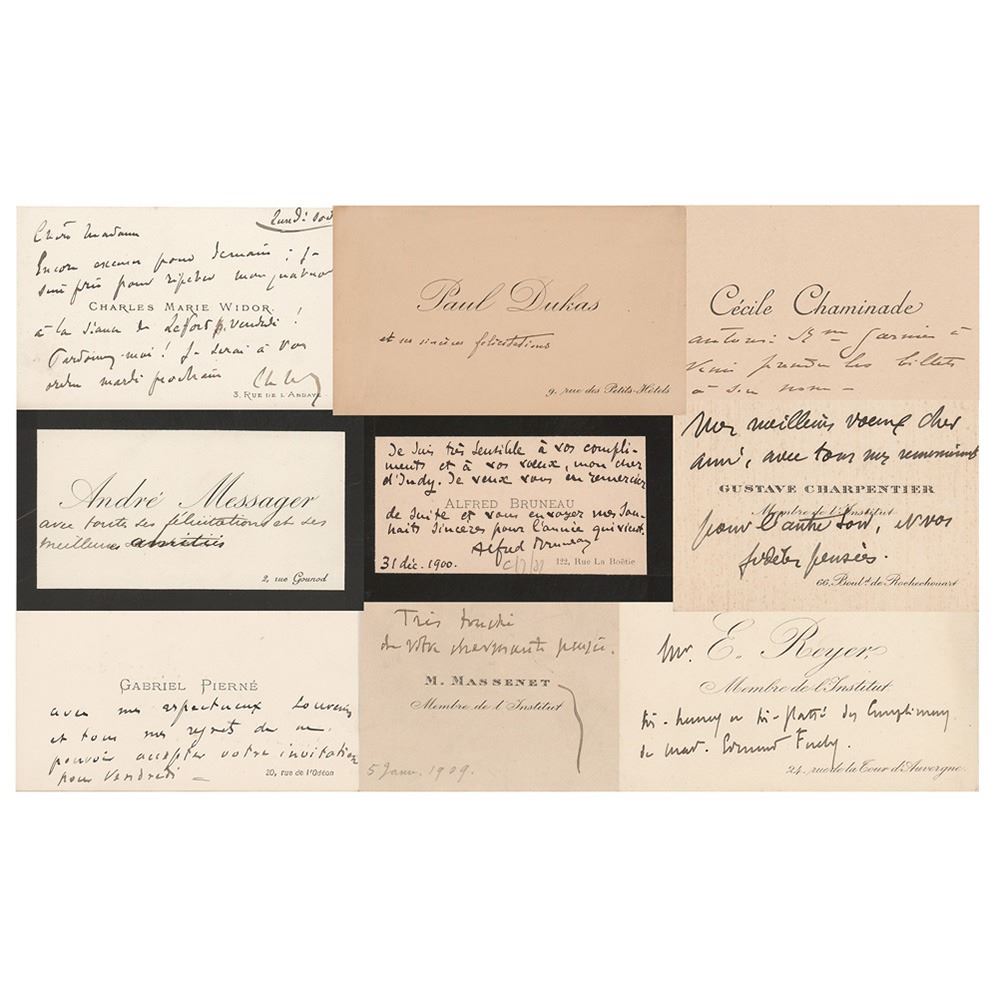 Lundi soir
Chère Madame
Encore excuses pour demain ; je
suis pris pour répéter mon quatuor
CHARLES MARIE WIDOR
à la séance de Lefort, vendredi !
Pardonnez-moi ! je serai à vos
ordres mardi prochain
3, RUE DE L'ABBAYE
Paul Dukas
et ses sincères félicitations
9, rue des Petits-Hôtels
Cécile Chaminade
autorise Mme Garnier à
venir prendre les billets
à son nom —
André Messager
avec toutes ses félicitations et ses
meilleures amitiés
2, rue Gounod
Je suis très sensible à vos compli-
ments et à vos vœux, mon cher
d'Indy. Je veux vous en remercier
ALFRED BRUNEAU
de suite et vous envoyer mes sou-
haits sincères pour l'année qui vient.
Alfred Bruneau
31 déc. 1900.
122, Rue La Boëtie
Mes meilleurs vœux cher
ami, avec tous mes remerciments
GUSTAVE CHARPENTIER
Membre de l'Institut
pour l'autre soir, et vos
fidèles pensées.
66, Boulᵈ de Rochechouart
GABRIEL PIERNÉ
avec mes respectueux souvenirs
et tous mes regrets de ne
pouvoir accepter votre invitation
pour Vendredi —
20, rue de l'Odéon
Très touché
de votre charmante pensée.
M. MASSENET
Membre de l'Institut
5 Janv. 1909.
Mr. E. Reyer
Membre de l'Institut
très-heureux et très-flatté des compliments
de Mad.
24, rue de la Tour d'Auvergne.